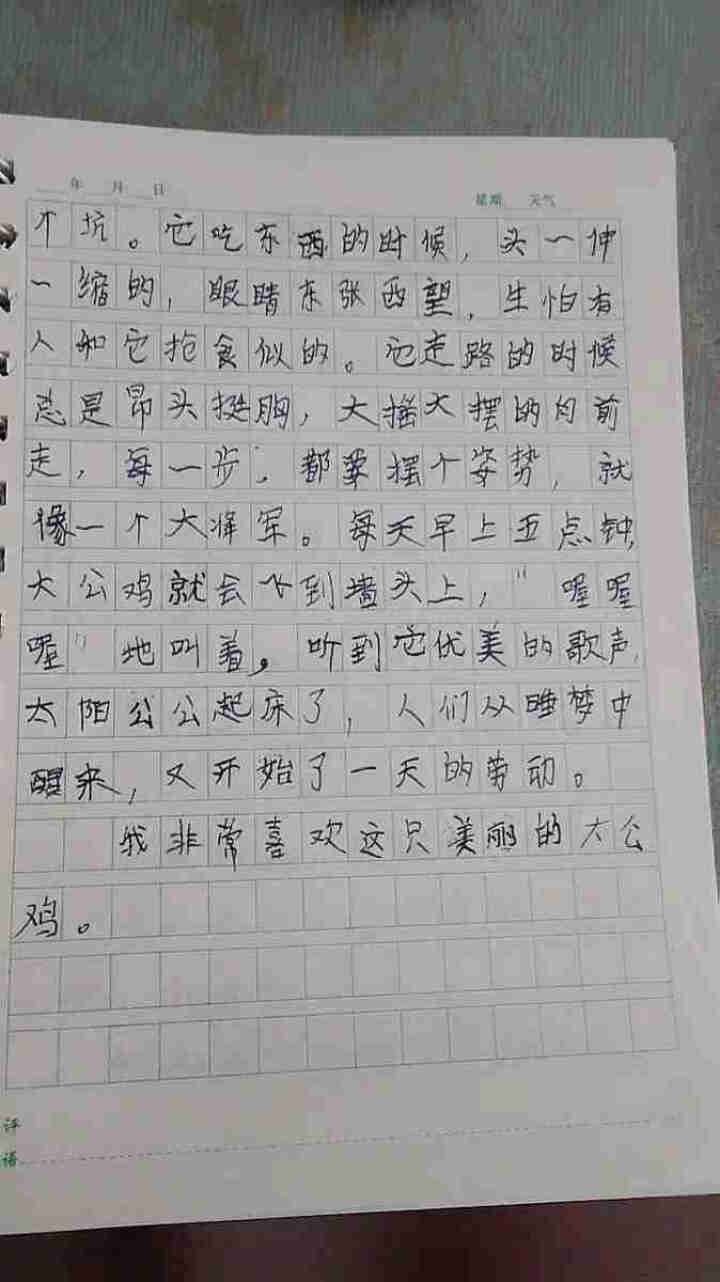 年 月 日 星期 天气
个坑。它吃东西的时候，头一伸
一缩的，眼睛东张西望，生怕有
人和它抢食似的。它走路的时候
总是昂头挺胸，大摇大摆的向前
走，每一步，都要摆个姿势，就
像一个大将军。每天早上五点钟，
大公鸡就会飞到墙头上，“喔喔
喔”地叫着，听到它优美的歌声，
太阳公公起床了，人们从睡梦中
醒来，又开始了一天的劳动。
我非常喜欢这只美丽的大公
鸡。
评
语